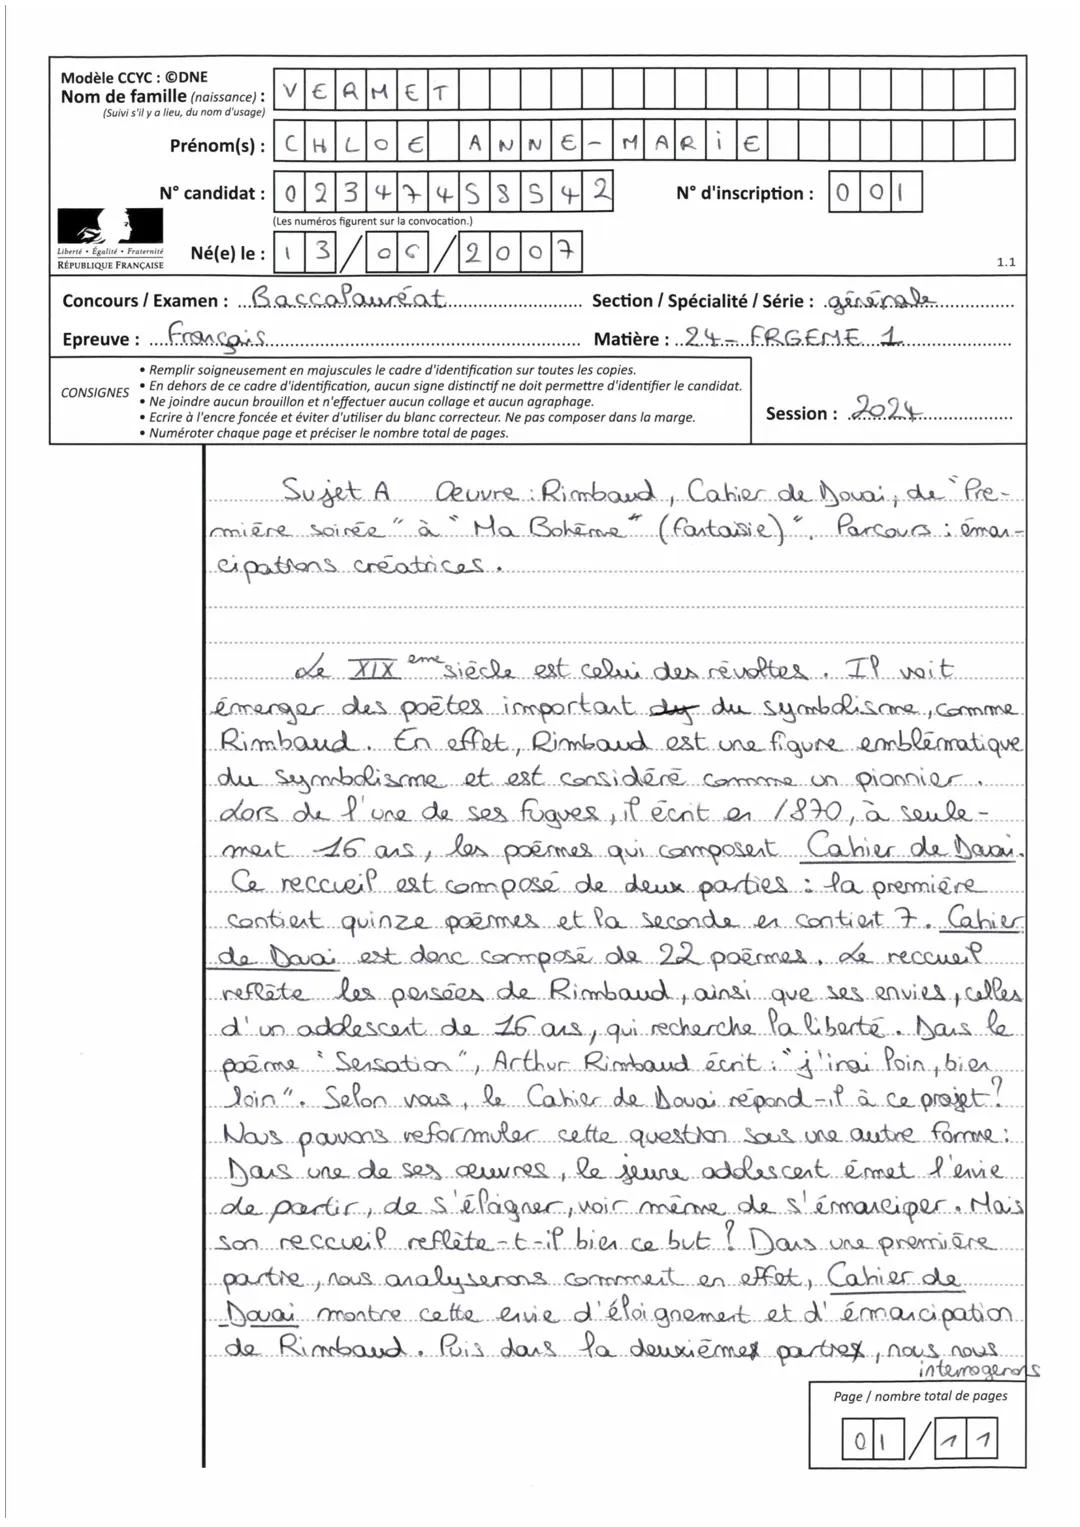 Modèle CCYC : ©DNE
Nom de famille (naissance) : VERMET
(Suivi s'il y a lieu, du nom d'usage)
Prénom(s) : CHLOE ANNE-MARiE
N° candidat : 02347458542 N° d'inscription : 001
(Les numéros figurent sur la convocation.)
Liberté • Égalité • Fraternité
RÉPUBLIQUE FRANÇAISE
Né(e) le : 13/06/2007
1.1
Concours / Examen : Baccalauréat Section / Spécialité / Série : générale
Epreuve : Français Matière : 24- FRGEME 1
CONSIGNES
• Remplir soigneusement en majuscules le cadre d'identification sur toutes les copies.
• En dehors de ce cadre d'identification, aucun signe distinctif ne doit permettre d'identifier le candidat.
• Ne joindre aucun brouillon et n'effectuer aucun collage et aucun agrafage.
• Ecrire à l'encre foncée et éviter d'utiliser du blanc correcteur. Ne pas composer dans la marge.
• Numéroter chaque page et préciser le nombre total de pages.
Session : 2024
Sujet A Œuvre : Rimbaud, Cahier de Douai, de "Pre-
mière soirée" à "Ma Bohême" (fantaisie)". Parcours : éman-
cipations créatrices.
Le XIX eme siècle est celui des révoltes. Il voit
émerger des poètes important du symbolisme, comme
Rimbaud. En effet, Rimbaud est une figure emblématique
du symbolisme et est considéré comme un pionnier.
Lors de l'une de ses fugues, il écrit en 1870, à seule-
ment 16 ans, les poèmes qui composent Cahier de Douai.
Ce reccueil est composé de deux parties : la première
contient quinze poèmes et la seconde en contient 7. Cahier
de Douai est donc composé de 22 poèmes. Le reccueil
reflète les pensées de Rimbaud, ainsi que ses envies, celles
d'un addescent de 16 ans, qui recherche la liberté. Dans le
poème "Sensation", Arthur Rimbaud écrit : "j'irai loin, bien
loin". Selon vous, le Cahier de Douai répond-il à ce projet ?
Nous pouvons reformuler cette question sous une autre forme :
Dans une de ses œuvres, le jeune addescent émet l'envie
de partir, de s'éloigner, voir même de s'émanciper. Mais
son reccueil reflète-t-il bien ce but ? Dans une première
partie, nous analyserons comment en effet, Cahier de
Douai montre cette envie d'éloignement et d'émancipation
de Rimbaud. Puis dans la deuxième partie, nous nous
interrogerons
Page / nombre total de pages
01/11